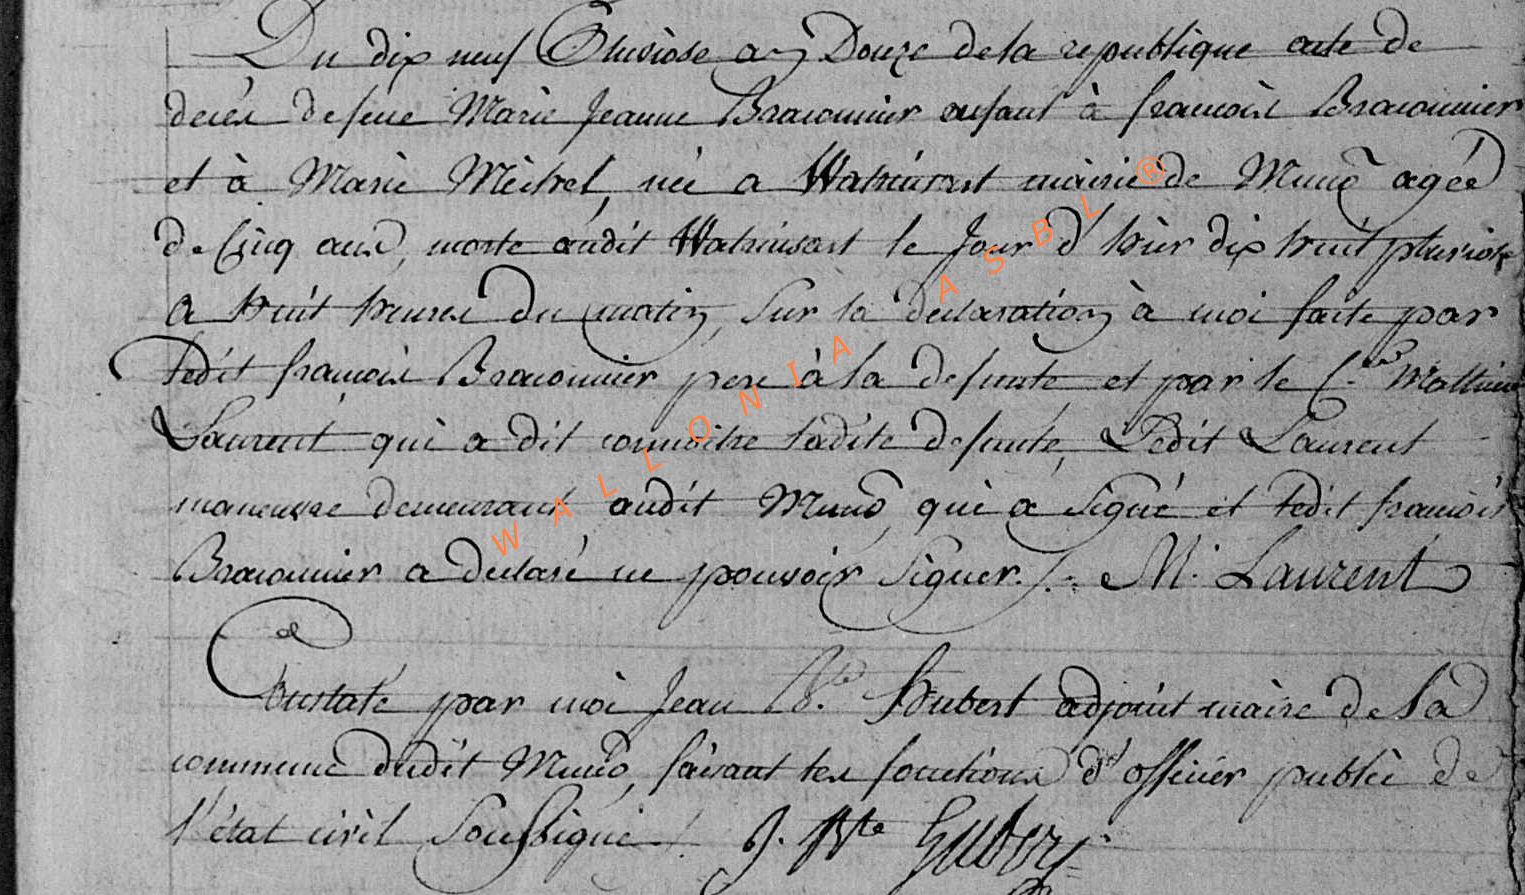 Du dix neuf Pluviose an Douze de la republique acte de
decès de feue Marie Jeanne Braconnier enfant à francois Braconnier
et à Marie Mèchel, née a Watrinsart mairie de Muno agée
de Cinq ans, morte audit Watrinsart le Jour d'hier dix huit pluviose
a huit heures du matin, Sur la declaration à moi faite par
ledit francois Braconnier pere à la defunte et par le C.en Mathieu
Laurent qui a dit connoitre ladite defunte, Ledit Laurent
manoeuvre demeurant audit Muno, qui a Signé et ledit francois
Braconnier a declaré ne pouvoir Signer. M. Laurent
Constaté par moi Jean B.te Hubert adjoint maire de la
commune dudit Muno, faisant les fonctions d'officier public de
l'état civil Soussigné. J. Bte Hubert
WALLONIA ASBL ®